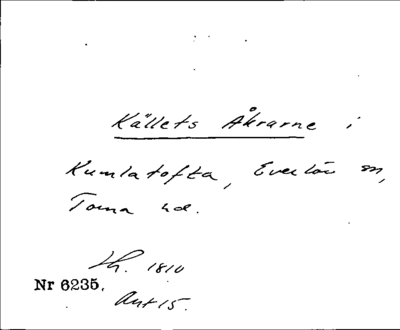 Källets Åkrarne i
Kumlatofta, Everlöv sn,
Torna hd.
Lh. 1810
Nr 6235.
Akt 15.